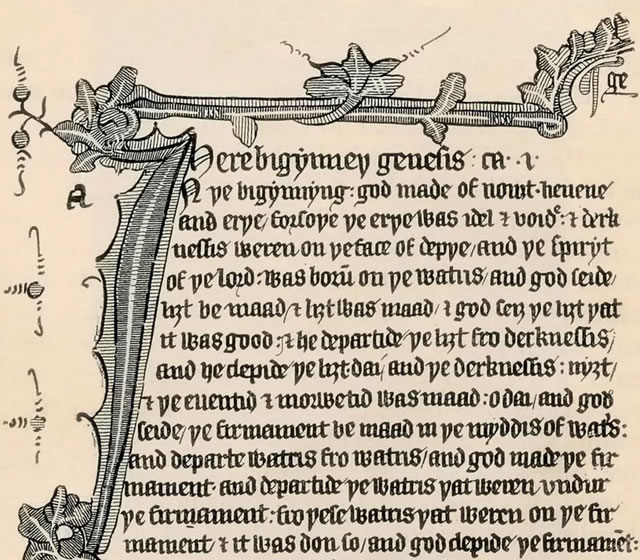 ge
Here bigynneþ genesis : ca · i ·
a
IN þe bigynnyng : god made of nowt heuene
and erþe/ forsoþe þe erþe was idel ⁊ voide : ⁊ derk
nessis weren on þe face of depþe/ and þe spiryt
of þe lord : was borū on þe watris/ and god seide/
liȝt be maad/ ⁊ liȝt was maad/ ⁊ god seiȝ þe liȝt þat
it was good : ⁊ he departide þe liȝt fro derknessis/
and he clepide þe liȝt dai/ and þe derknessis : nyȝt/
⁊ þe euentid ⁊ morwetid was maad : o dai/ and god
seide/ þe firmament be maad in þe myddis of wat's :
and departe watris fro watris/ and god made þe fir
mament · and departide þe watris þat weren vndur
þe firmament : fro þese watris þat weren on þe fir
mament/ ⁊ it was don so/ and god clepide þe firmamēt :